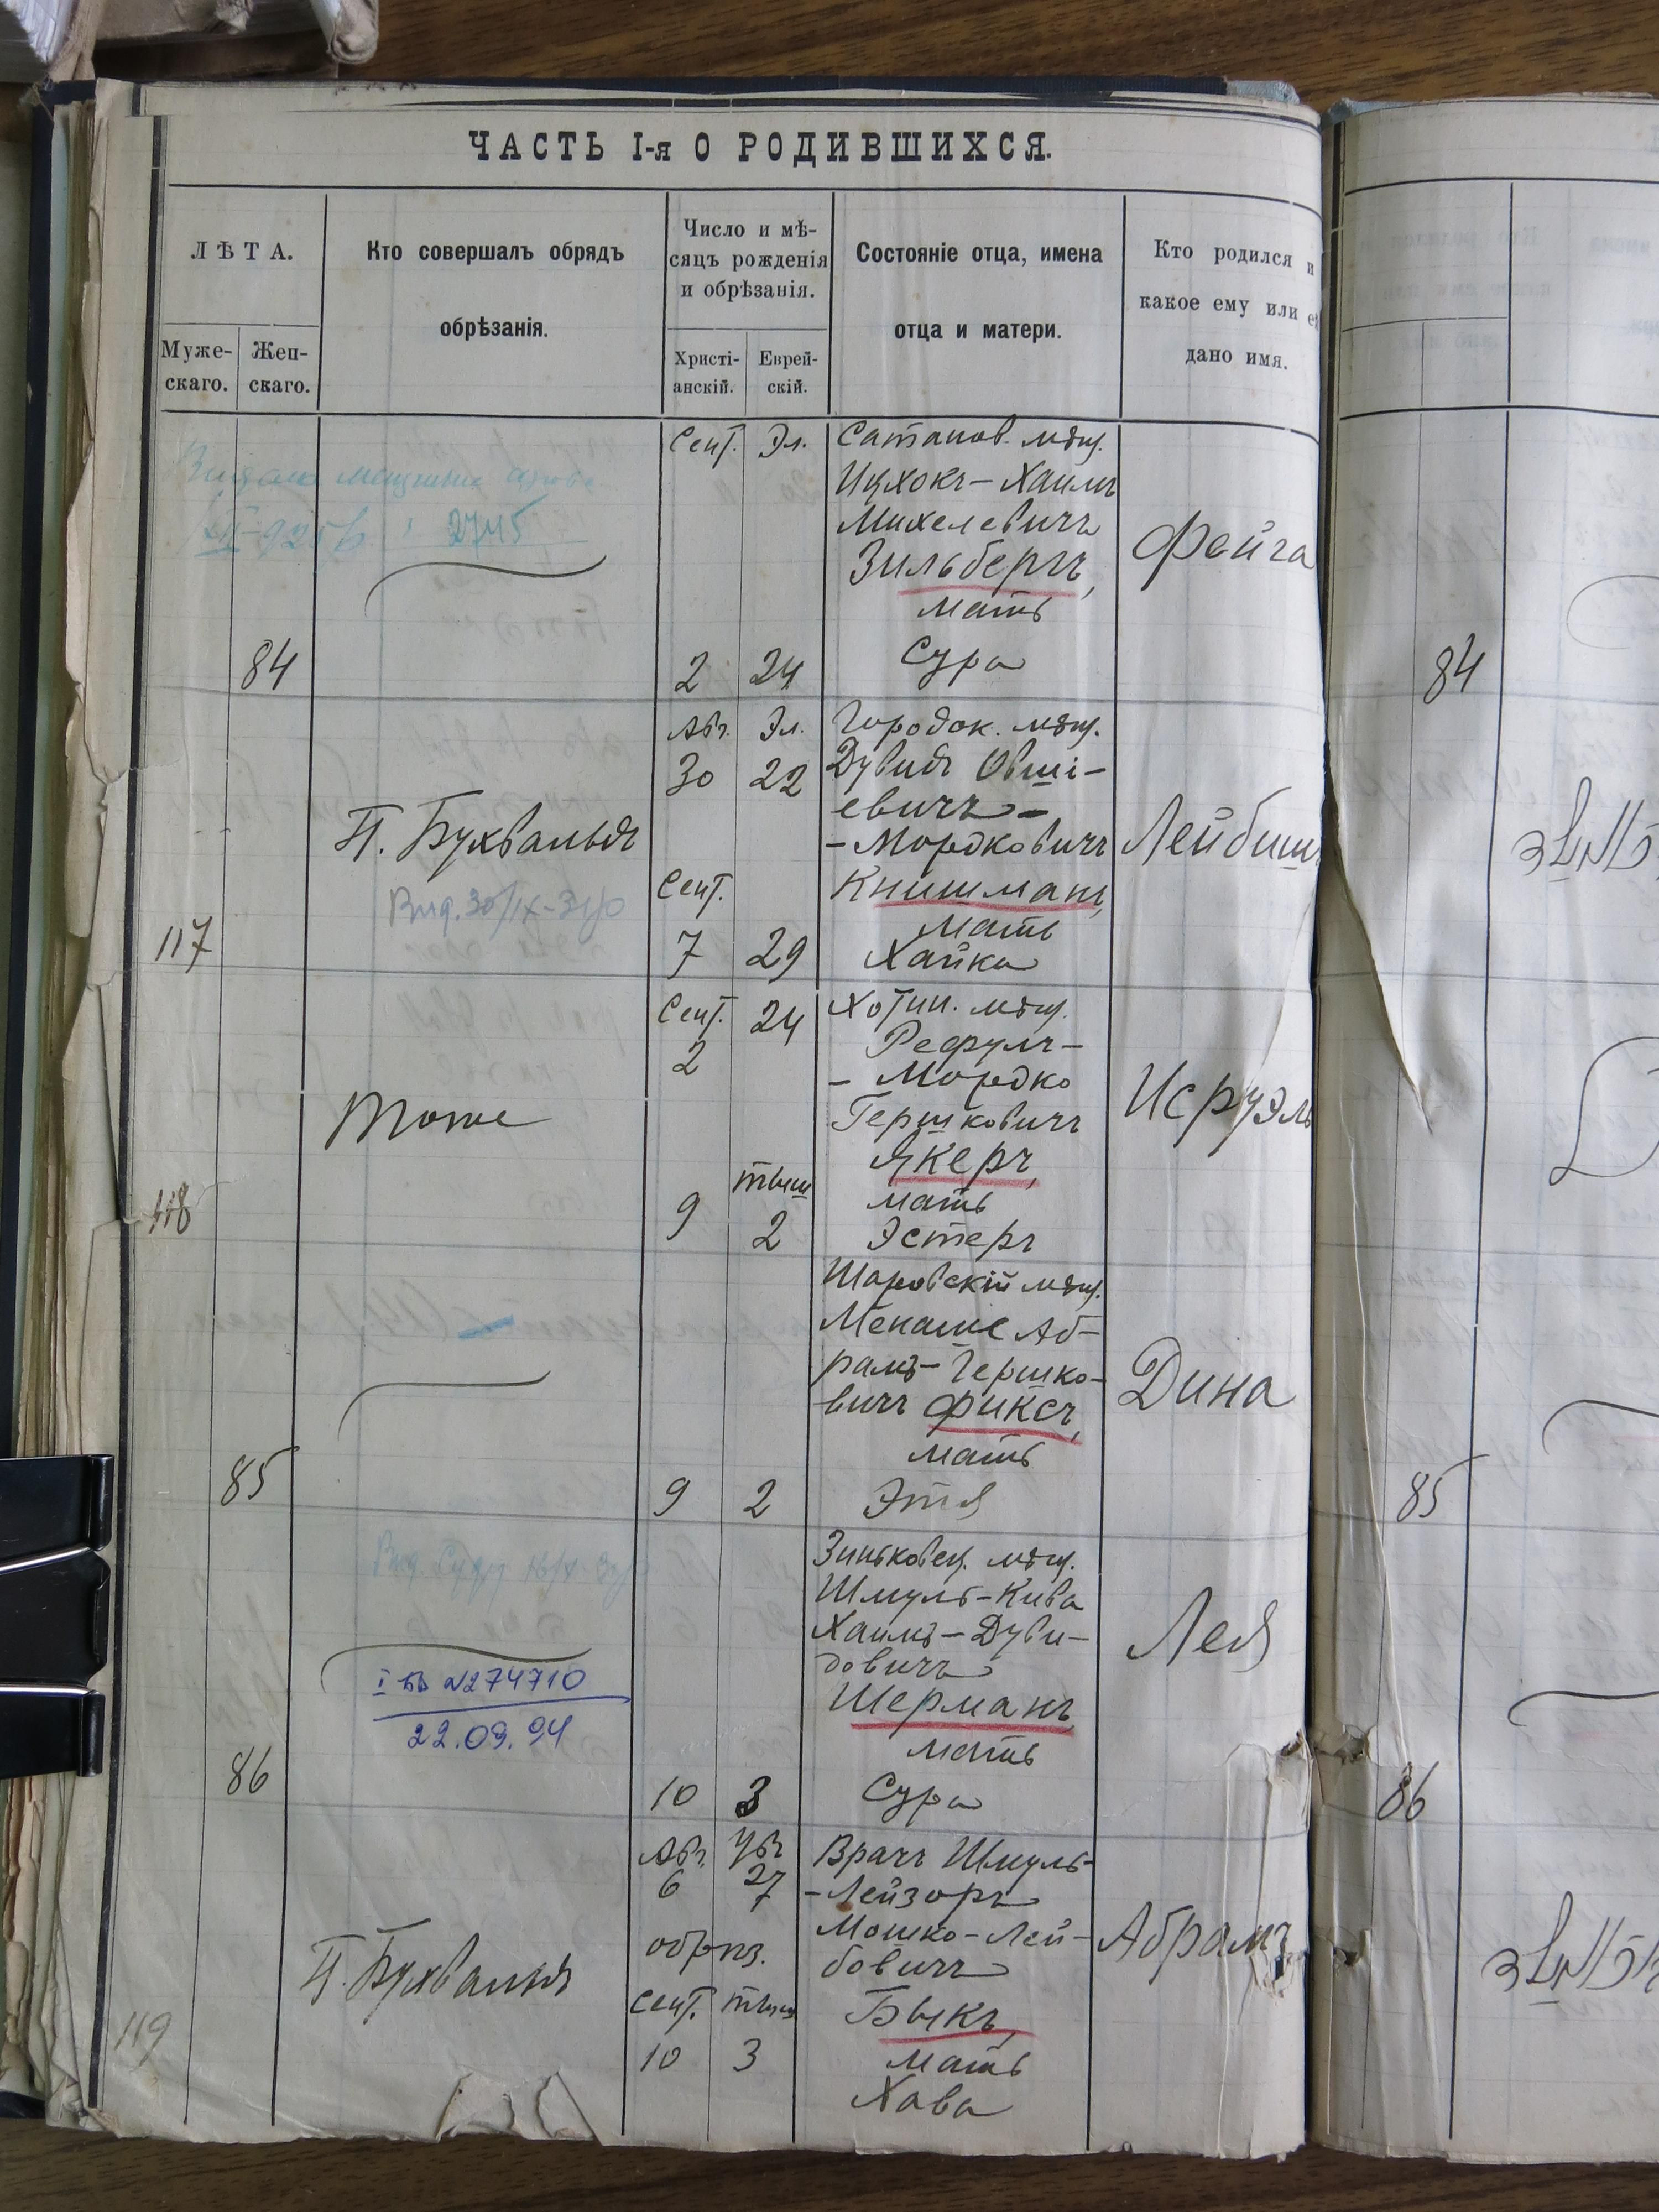 ЧАСТЬ I-я О РОДИВШИХСЯ.
ЛѢТА.
Муже-
скаго.
Жен-
скаго.
Кто совершалъ обрядъ
обрѣзанія.
Число и мѣ-
сяцъ рожденія
и обрѣзанія.
Христі-
анскій.
Еврей-
скій.
Состояніе отца, имена
отца и матери.
Кто родился и
какое ему или ей
дано имя.
84
2745
Сент. Эл.
2 24
Сатанов. мѣщ.
Ицхокъ-Хаимъ
Михелевичъ
Зильберъ,
мать
Сура
Фейга
84
117
П. Бухвальдъ
Выд. 30/IX-31/0
Авг. Эл.
30 22
Сент.
7 29
Городок. мѣщ.
Дувидъ Овши-
евичъ-
-Мордковичъ
Книшманъ,
мать
Хайка
Лейбишъ
118
Тоже
Сент. 24
2
тыш
9 2
Хотин. мѣщ.
Рефулъ-
-Мордко
Гершковичъ
Якеръ,
мать
Эстеръ
Исруэль
85
9 2
Шаровскій мѣщ.
Менаше Аб-
рамъ-Гершко-
вичъ Фиксъ,
мать
Этя
Дина
85
86
I-БВ №274710
22.09.94
10 3
Зиньковец. мѣщ.
Шмуль-Кива
Хаимъ-Дуви-
довичъ
Шерманъ,
мать
Сура
Лея
86
119
П. Бухвальдъ
Авг.
6 27
обрѣз.
Сент. тыш
10 3
Врачъ Шмуль-
-Лейзоръ
Мошко-Лей-
бовичъ
Быкъ,
мать
Хава
Абрамъ